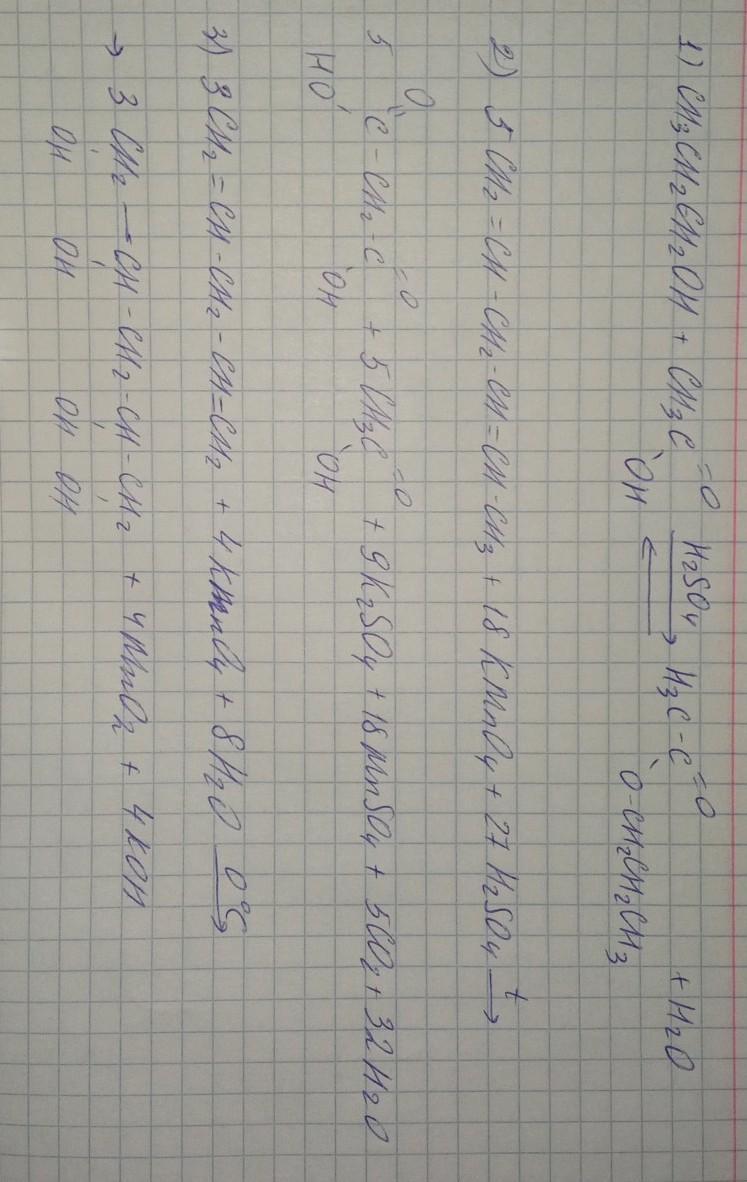 1) CH3CH2CH2OH + CH3C =O OH H2SO4 ⇄ H3C-C =O O-CH2CH2CH3 + H2O
2) 5 CH2=CH-CH2-CH=CH-CH3 + 18 KMnO4 + 27 H2SO4 t→
5 O HO C-CH2-C =O OH + 5 CH3C =O OH + 9K2SO4 + 18 MnSO4 + 5CO2 + 32 H2O
3) 3CH2=CH-CH2-CH=CH2 + 4 KMnO4 + 8 H2O 0°C→
→ 3 CH2—CH-CH2-CH-CH2 + 4MnO2 + 4 KOH
OH OH OH OH